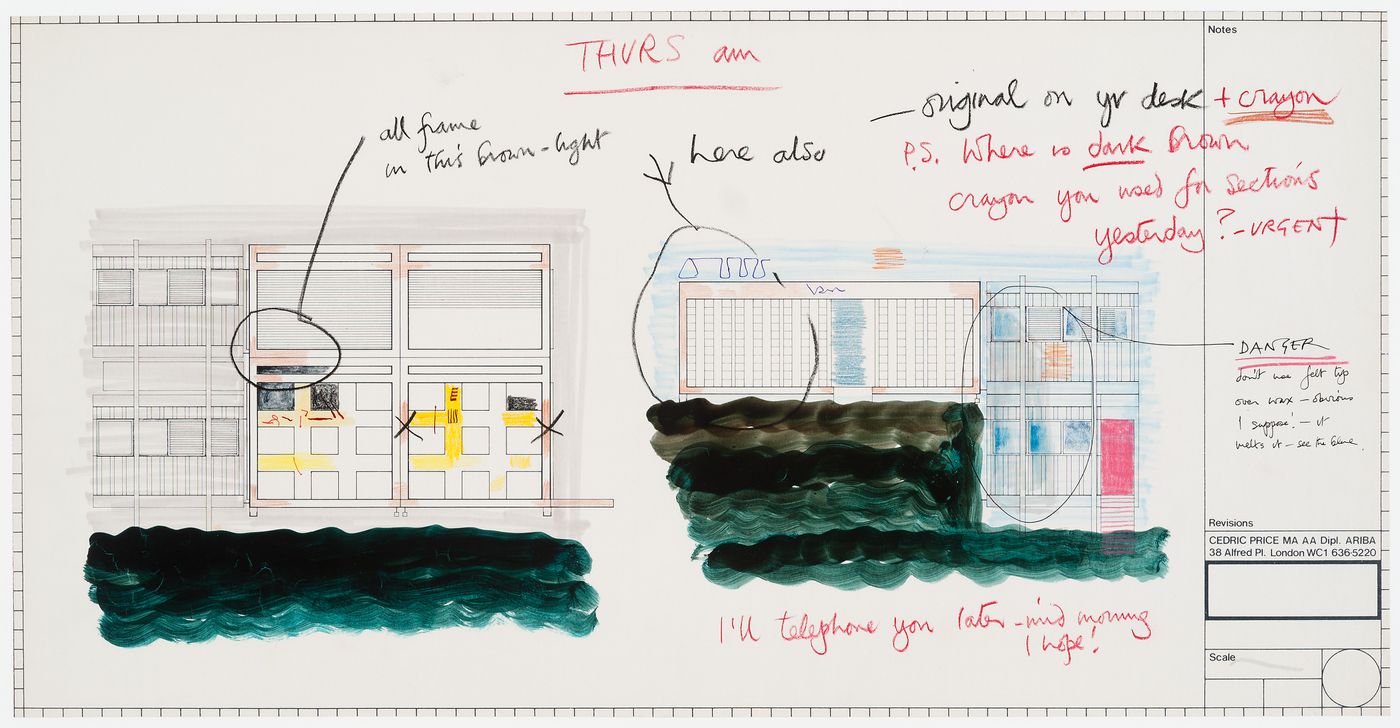 THURS am
Notes
— original on yr desk + crayon
all frame
in this brown - light
here also
P.S. Where is dark brown
crayon you used for sections
yesterday? - URGENT
DANGER
don't use felt tip
over wax — obvious
I suppose! — it
melts it — see the blue.
Revisions
CEDRIC PRICE MA AA Dipl. ARIBA
38 Alfred Pl. London WC1 636-5220
I'll telephone you later - mid morning
I hope!
Scale